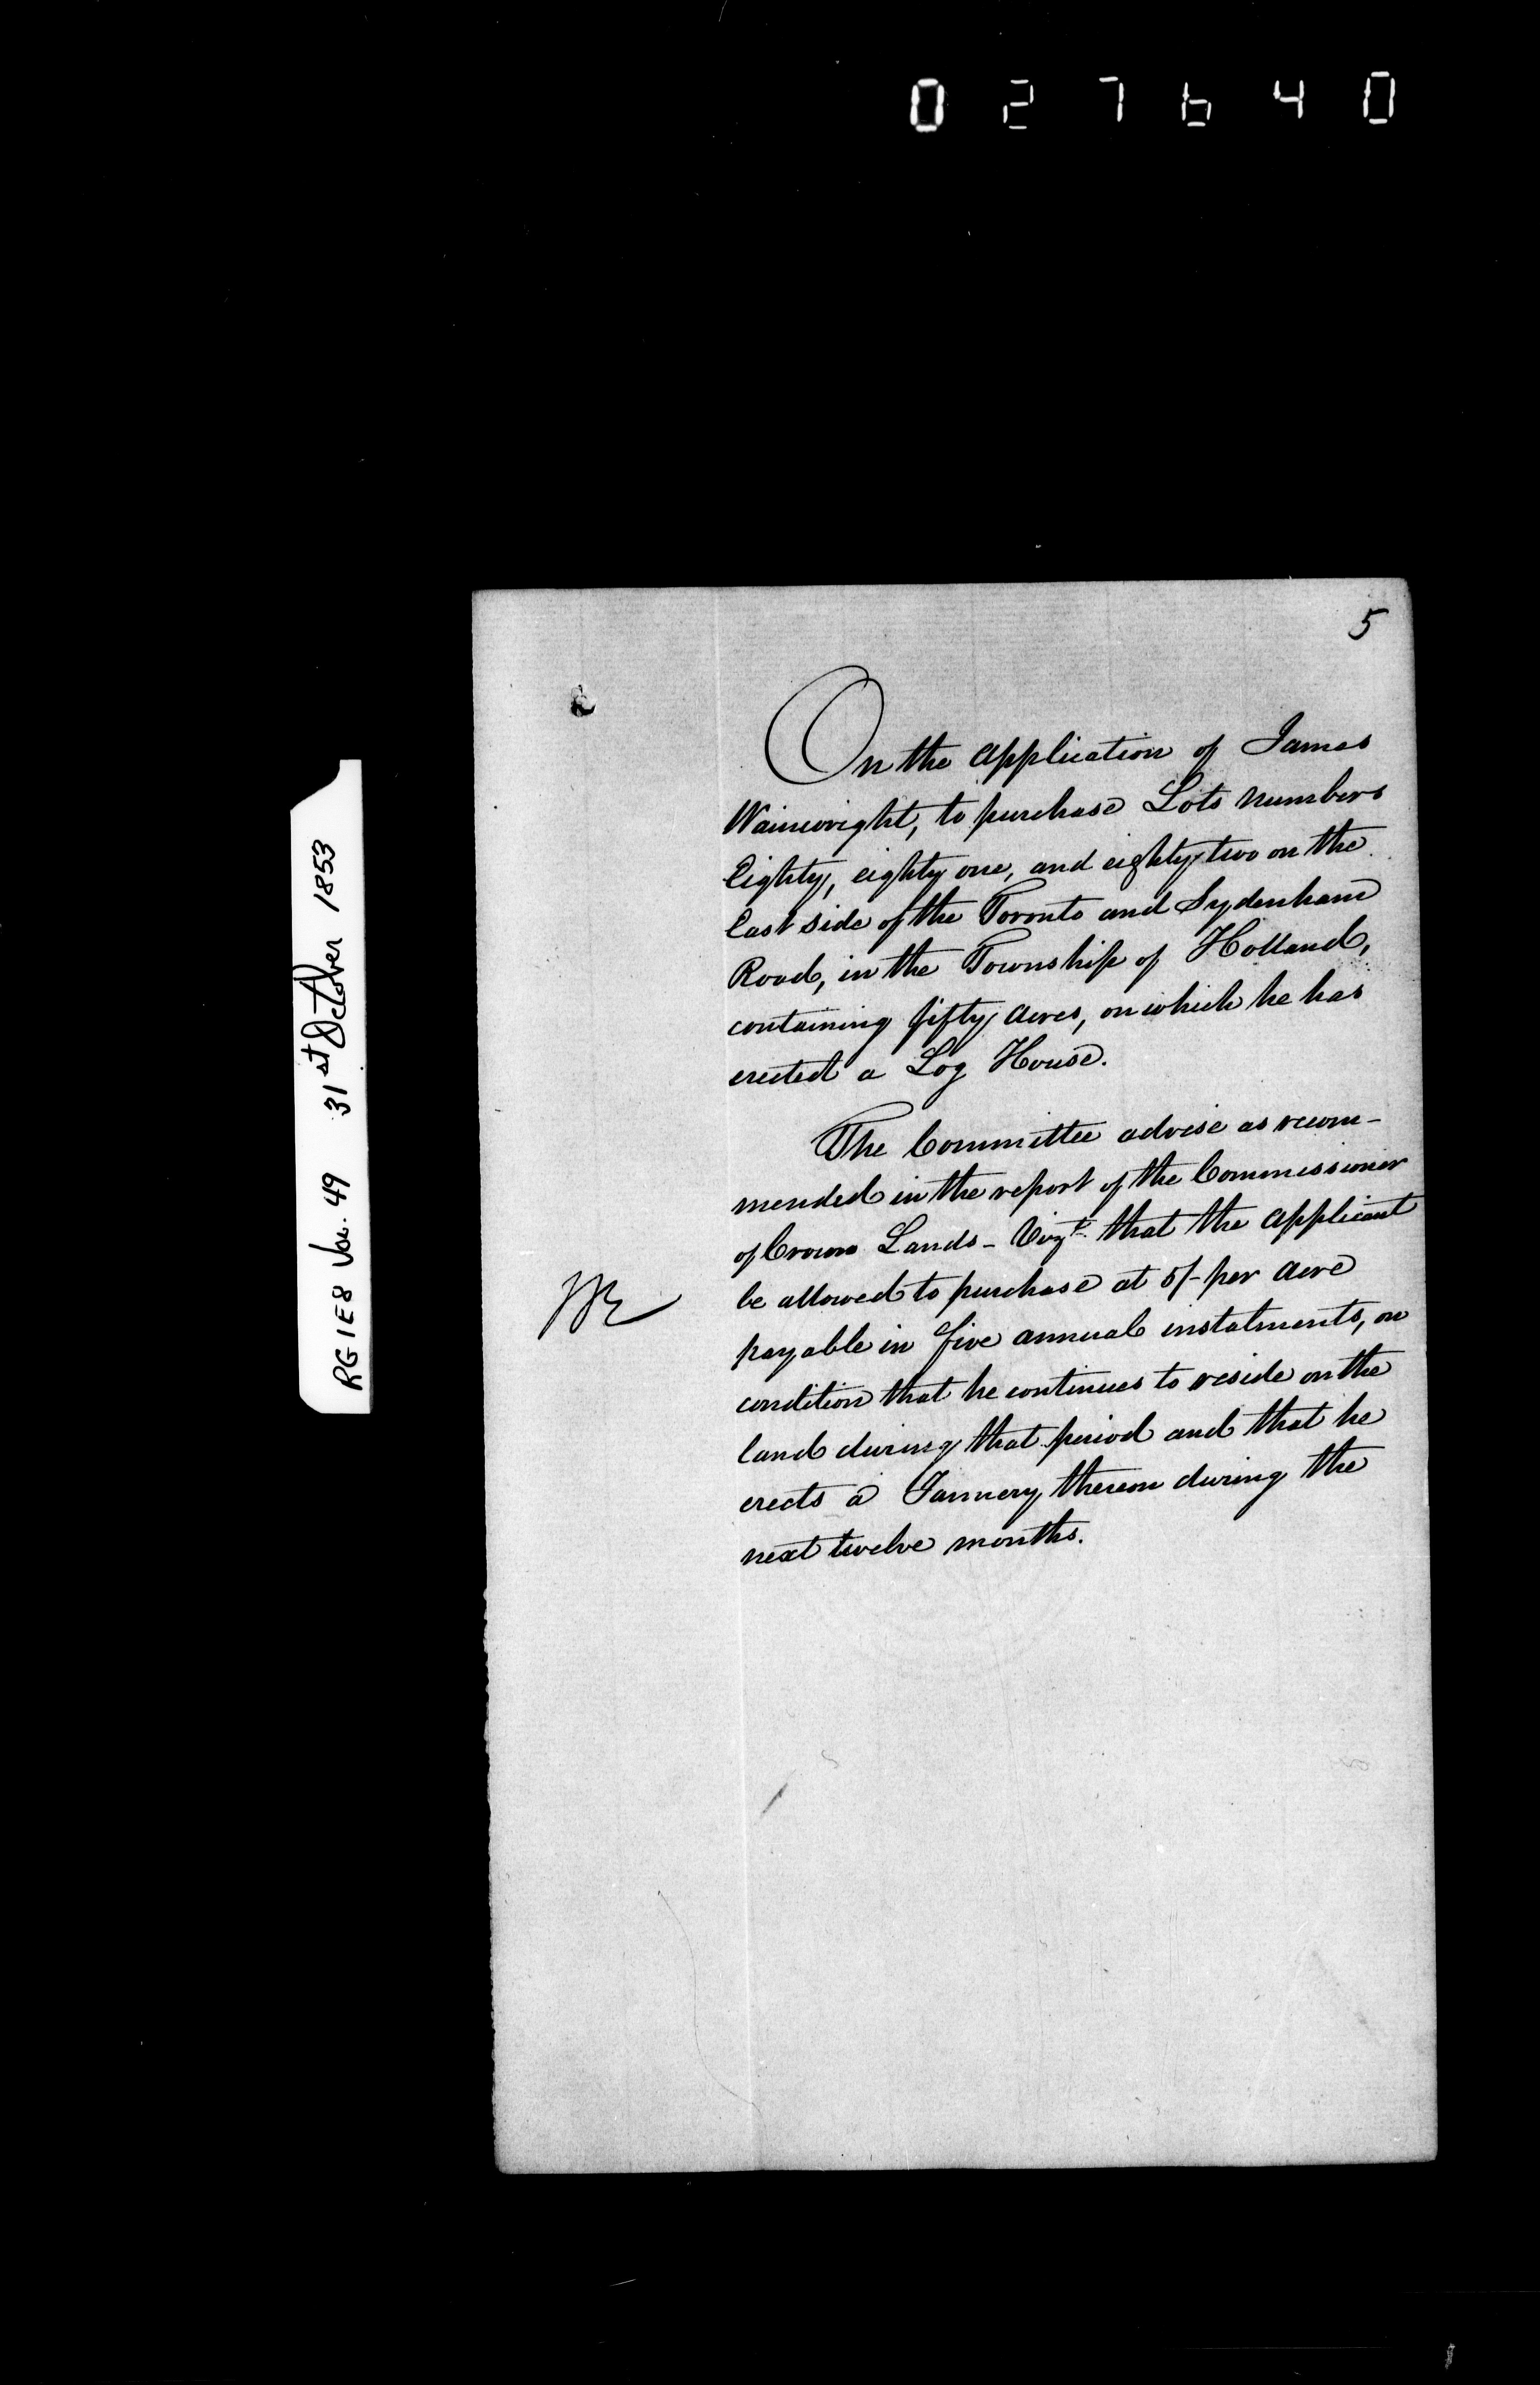 027640
RG 1 E8 Vol. 49 31st October 1853
5
On the application of James
Wainwright, to purchase Lots numbers
Eighty, eighty one, and eighty two on the
East side of the Toronto and Sydenham
Road, in the Township of Holland,
containing fifty acres, on which he has
erected a Log House.
The Committee advise as recom-
mended in the report of the Commissioner
of Crown Lands - Vizt. that the applicant
be allowed to purchase at 5/- per acre
payable in five annual instalments, on
condition that he continues to reside on the
land during that period and that he
erects a Tannery thereon during the
next twelve months.